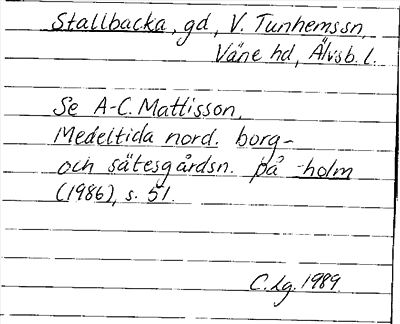 Stallbacka, gd, V. Tunhemssn,
Väne hd, Älvsb. l.
Se A-C. Mattisson,
Medeltida nord. borg-
och sätesgårdsn. på -holm
(1986), s. 51.
C. Lg. 1989.